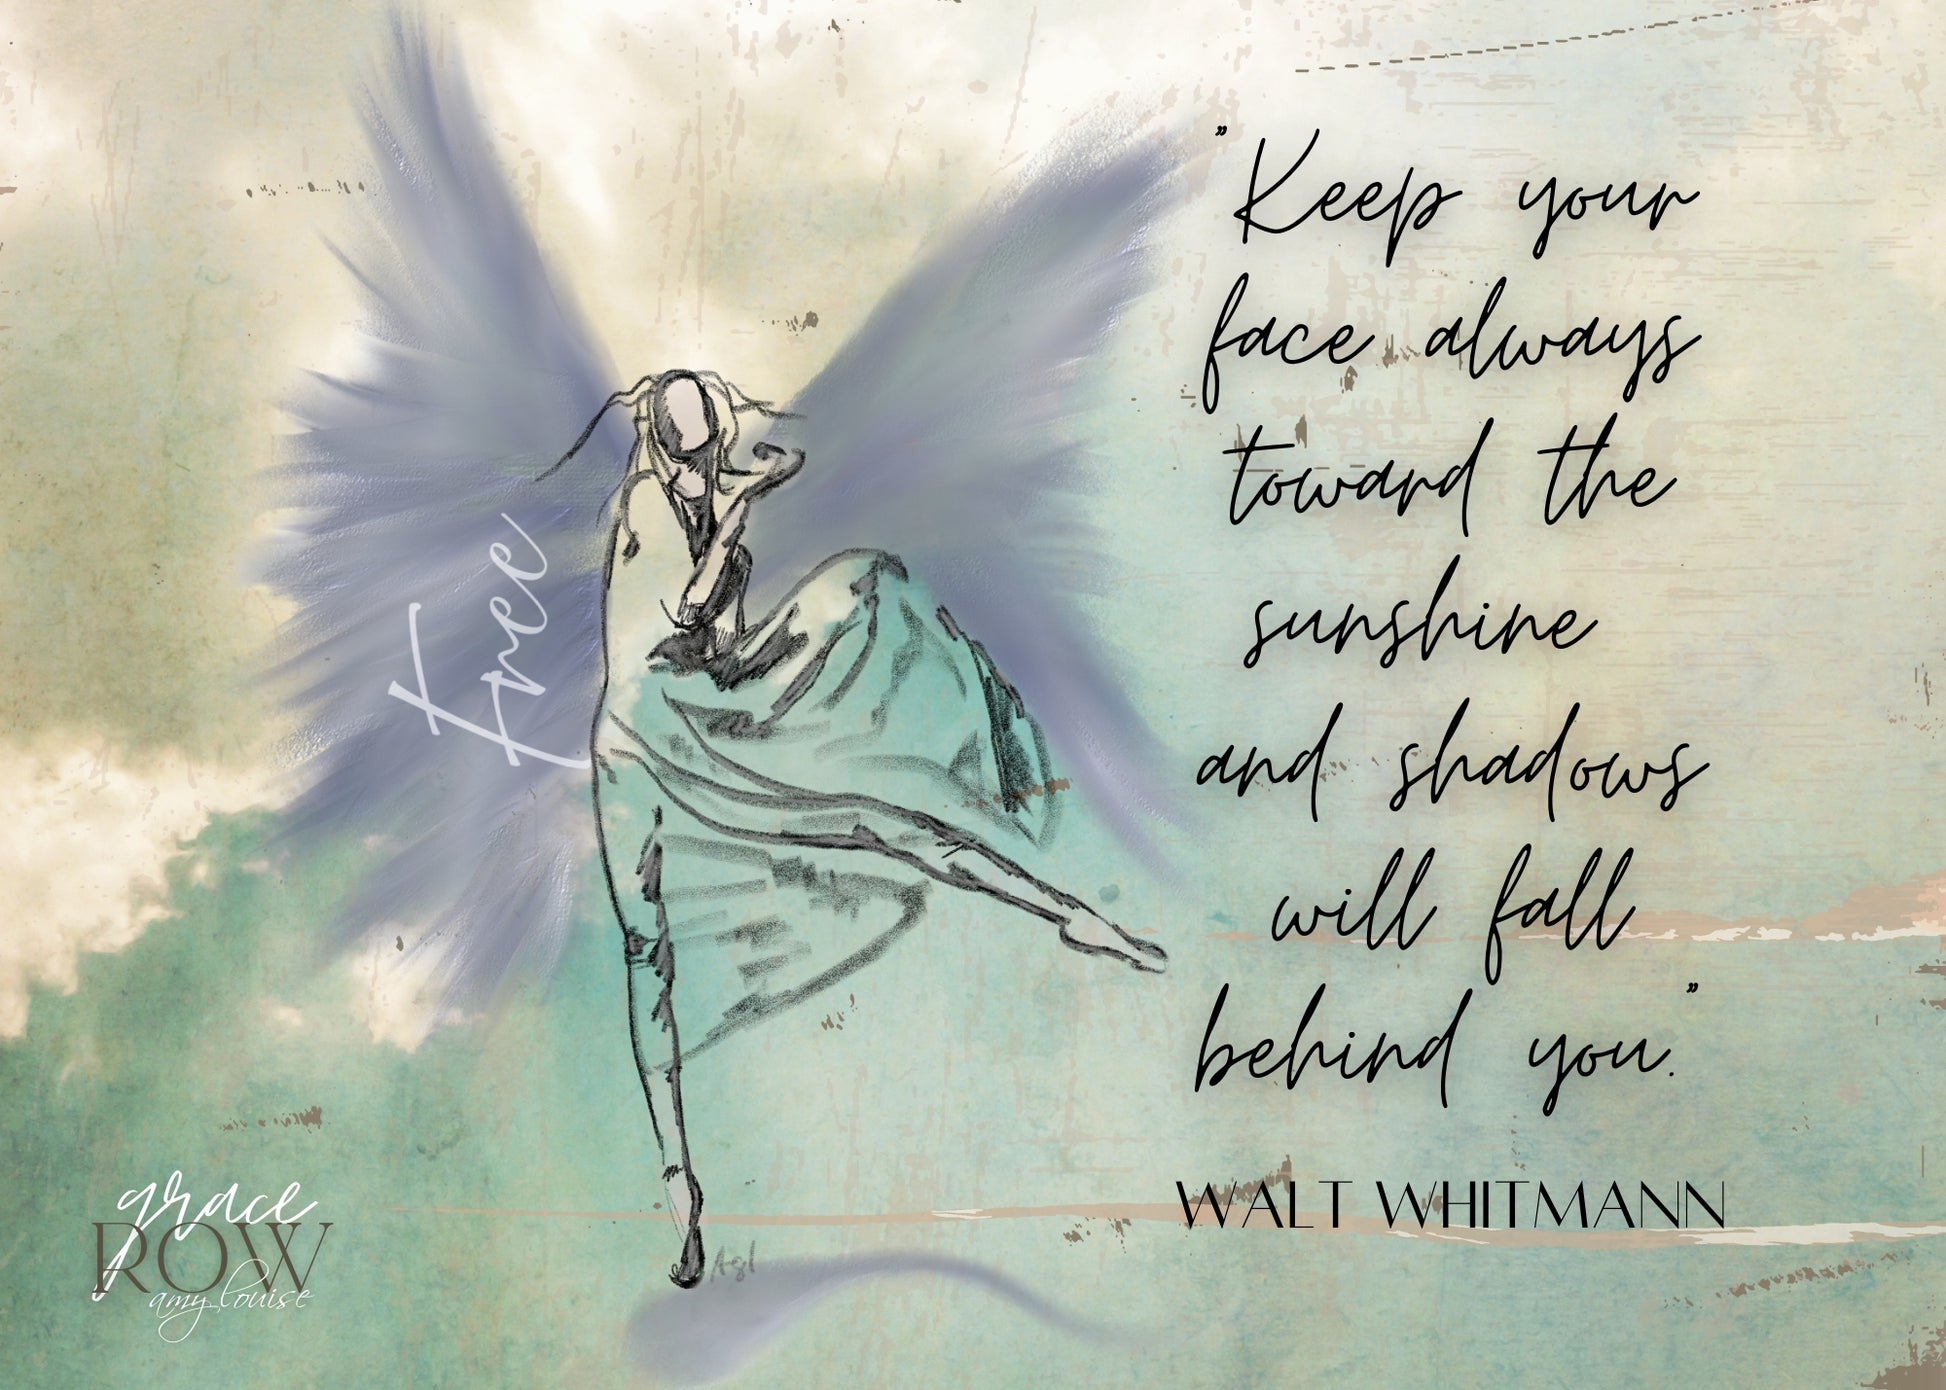 "Keep your
face always
toward the
sunshine
and shadows
will fall
behind you."
WALT WHITMANN
Free
grace
ROW
amy louise
Agl